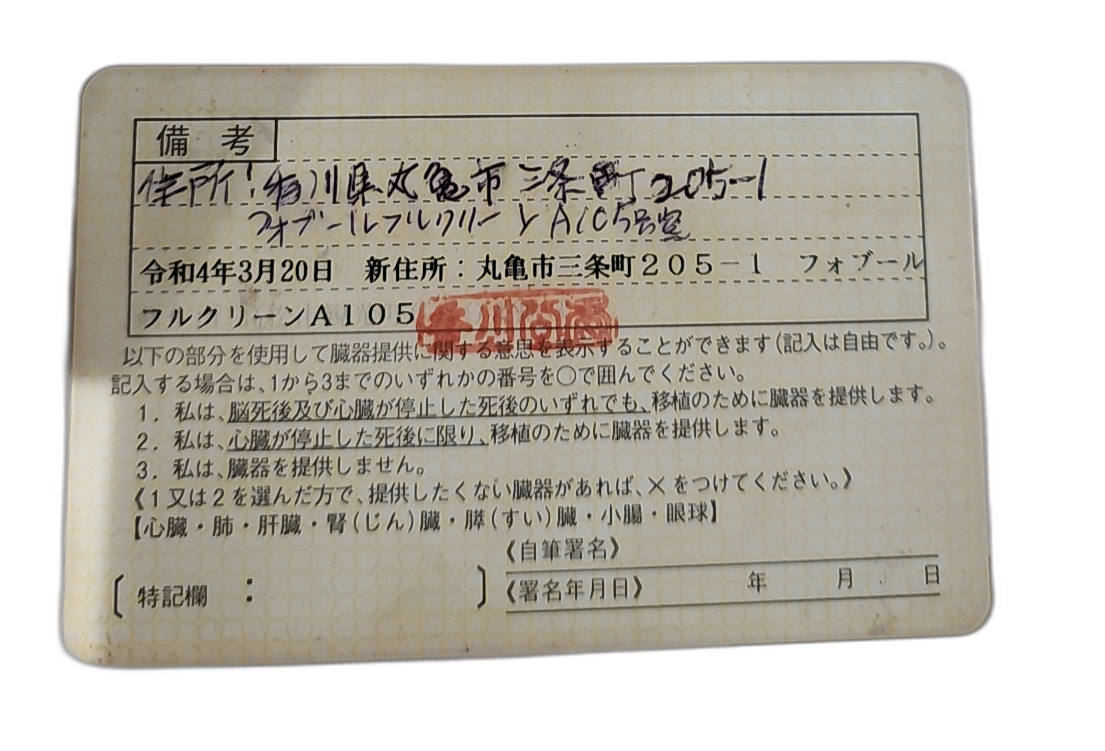 備考
住所:香川県丸亀市三条町205-1
フォブールフルクリーンA105号室
令和4年3月20日 新住所:丸亀市三条町205-1 フォブール
フルクリーンA105
香川公委
以下の部分を使用して臓器提供に関する意思を表示することができます(記入は自由です。)。
記入する場合は、1から3までのいずれかの番号を○で囲んでください。
1. 私は、脳死後及び心臓が停止した死後のいずれでも、移植のために臓器を提供します。
2. 私は、心臓が停止した死後に限り、移植のために臓器を提供します。
3. 私は、臓器を提供しません。
《1又は2を選んだ方で、提供したくない臓器があれば、×をつけてください。》
【心臓・肺・肝臓・腎(じん)臓・膵(すい)臓・小腸・眼球】
《自筆署名》
〔特記欄: 〕
《署名年月日》 年 月 日